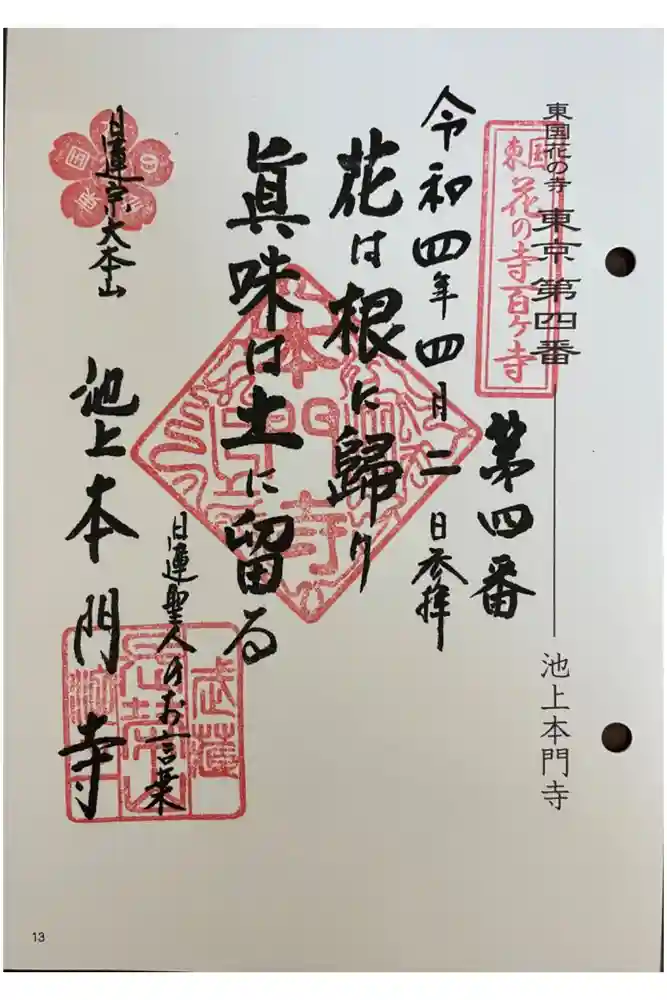 東国花の寺 東京 第四番 池上本門寺
東国花の寺百ケ寺
第四番
令和四年四月二日参拝
花は根に歸り
眞味は土に留る
日蓮聖人のお言葉
日蓮宗大本山
池上本門寺
本門寺
13